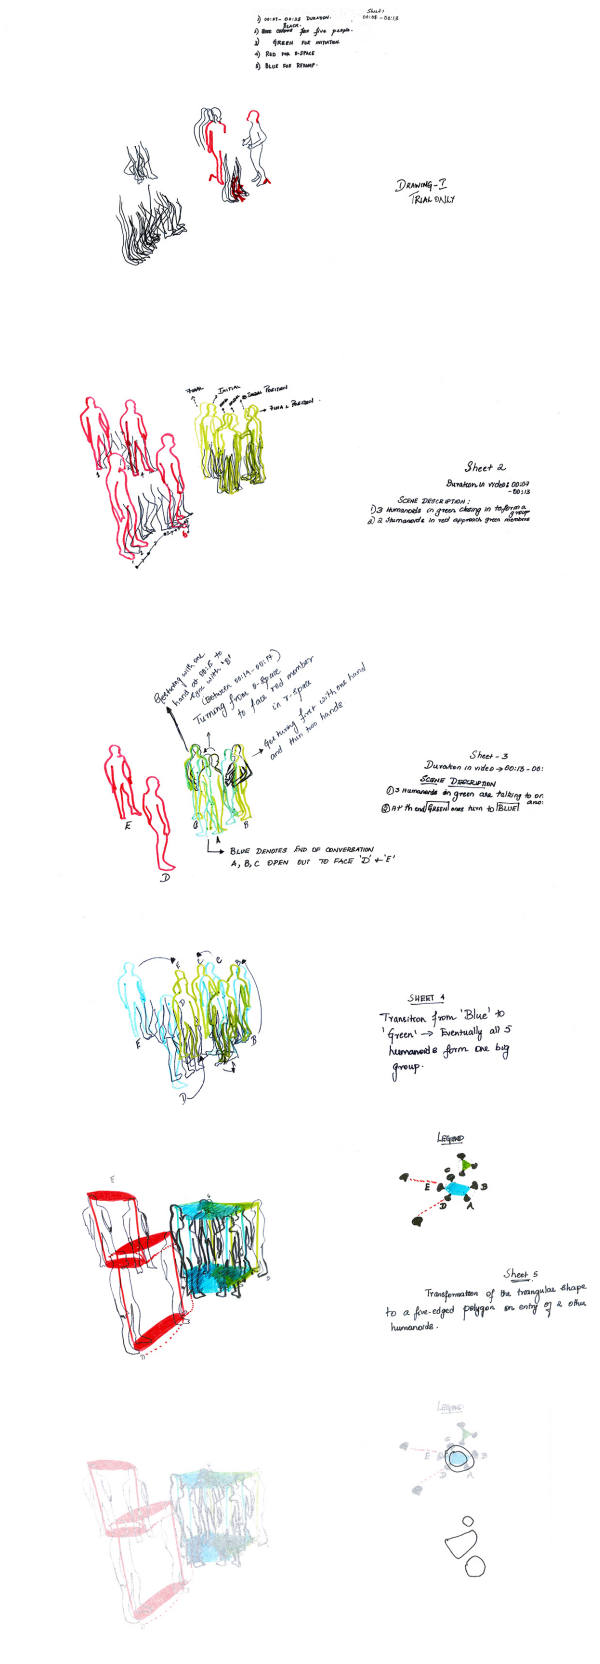 Sheet 1
1) 00:07- 00:25 DURATION. 00:05 - 00:13
BLACK.
2) COLOUR for five people.
3) GREEN FOR INITIATION
4) RED FOR O-SPACE
5) BLUE FOR REVAMP.
DRAWING-I
TRIAL ONLY
FINAL INITIAL POSITION
FINAL POSITION.
Sheet 2
Duration in video: 00:07
-00:13
SCENE DESCRIPTION:
1) 3 Humanoids in green closing in to form a
group
2) 2 Humanoids in red approach green members
Gesturing with one
hand at 00:15 to
sync with 'B'
(Between 00:14-00:17)
Turning from O-space
to face red member
in r-space
Gesturing first with one hand
and then two hands
Sheet-3
Duration in video → 00:13-00:
SCENE DESCRIPTION
① 3 Humanoids in green are talking to on
ano:
② At th end GREEN ones turn to BLUE
E
D
A
B
BLUE DENOTES END OF CONVERSATION
A, B, C OPEN OUT TO FACE 'D' & 'E'
SHEET 4
Transition from 'Blue' to
'Green' → Eventually all 5
humanoids form one big
group.
E
C
C
D
E
B
D
LEGEND
C
E
B
D
A
E
Sheet 5
Transformation of the triangular shape
to a five-edged polygon on entry of 2 other
humanoids.
LEGEND
C
E
B
D
A